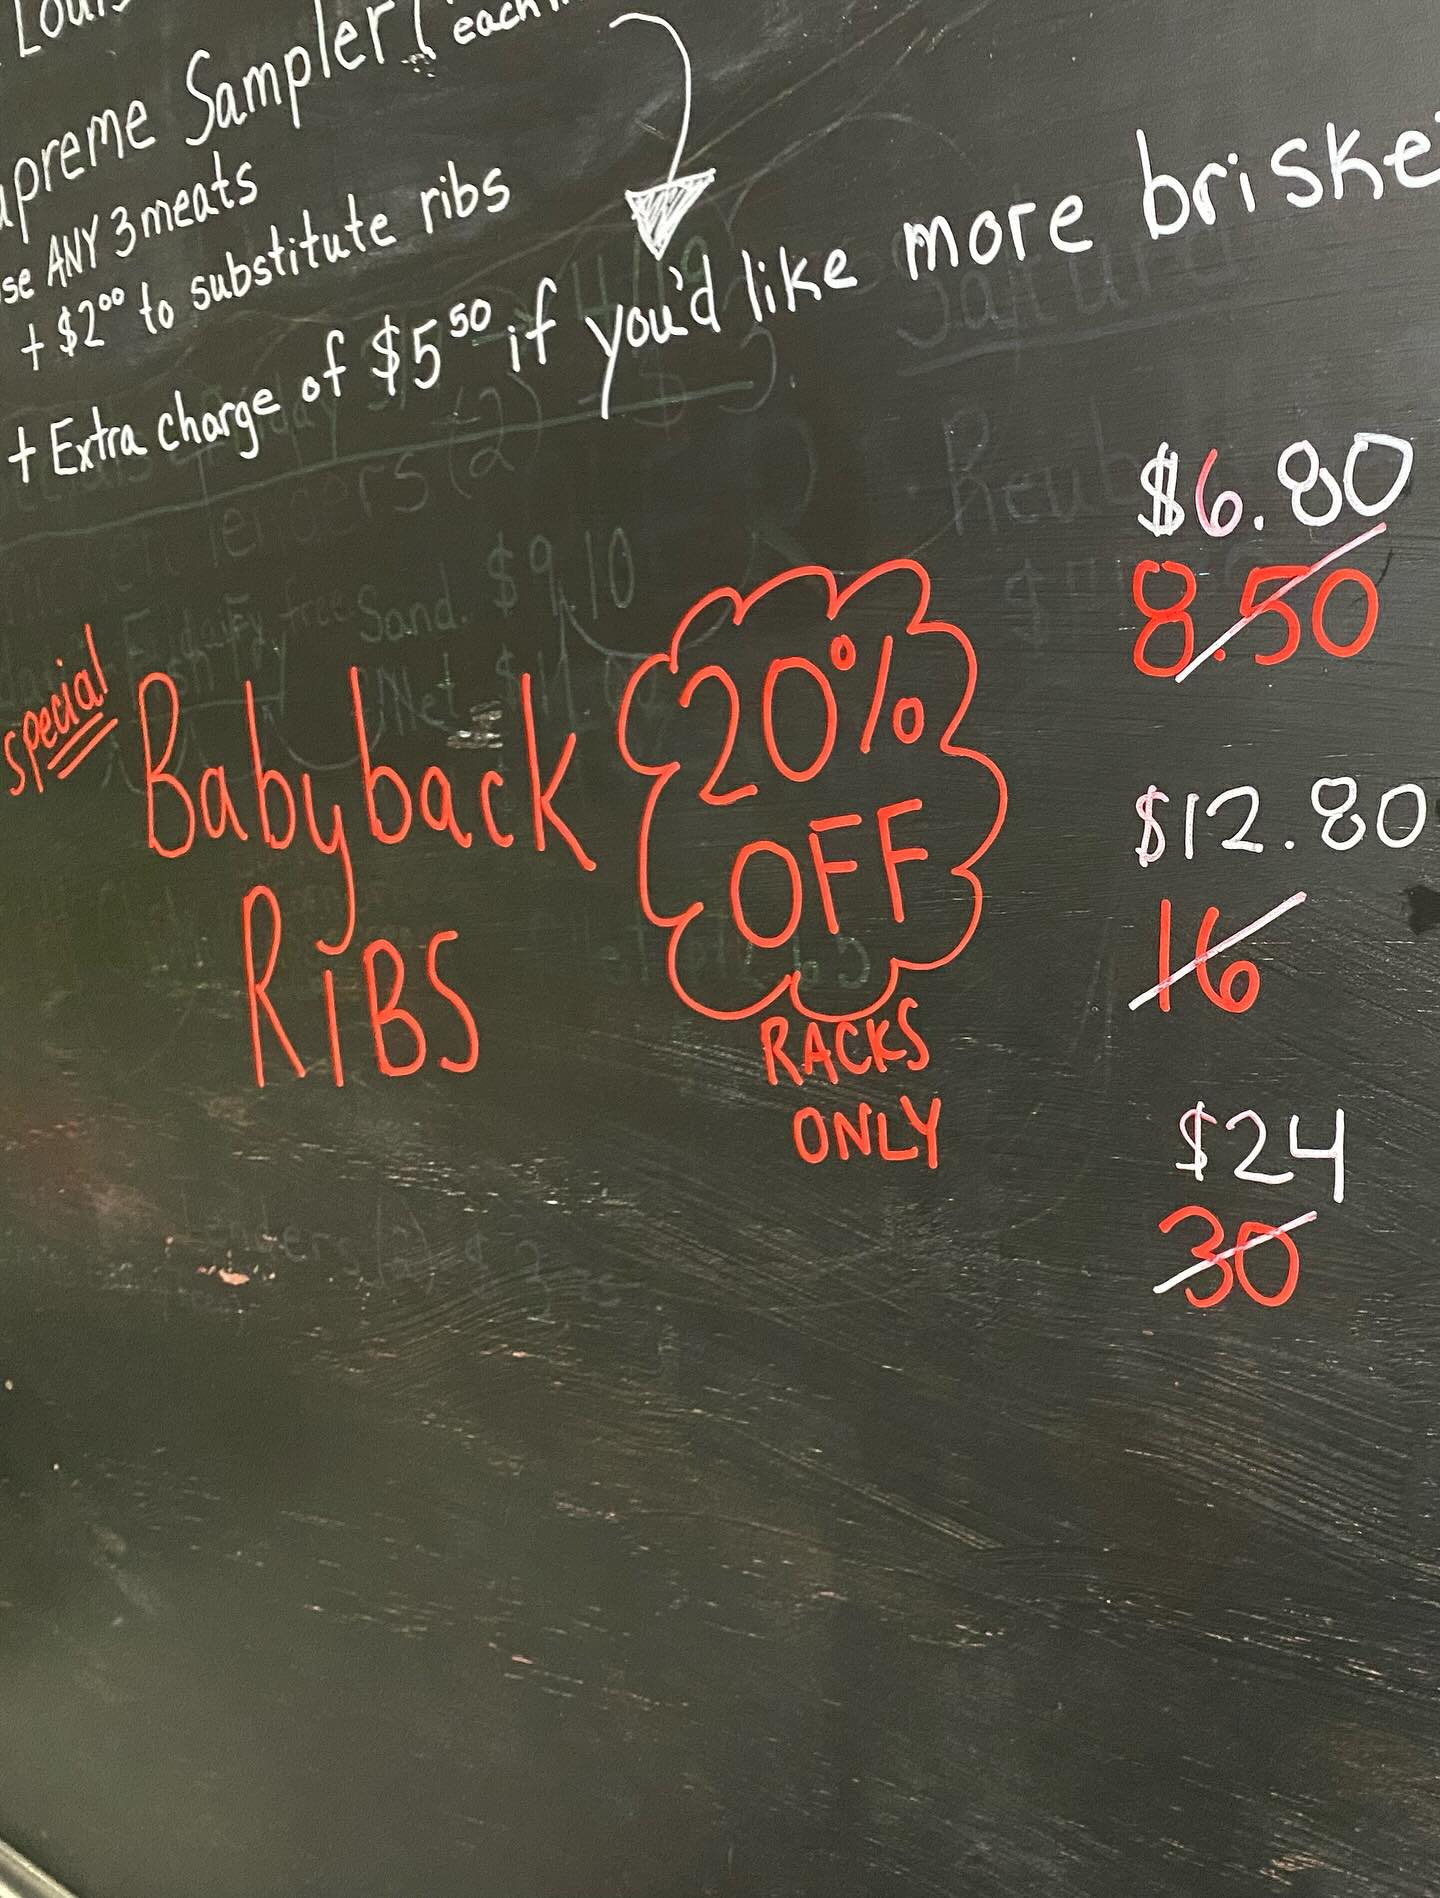 Sampler (
each
ANY 3 meats
+ $2⁰⁰ to substitute ribs
+ Extra charge of $5⁵⁰ if you'd like more
$6.80
8.50
special
Babyback
RiBS
20%
OFF
RACKS
ONLY
$12.80
16
$24
30